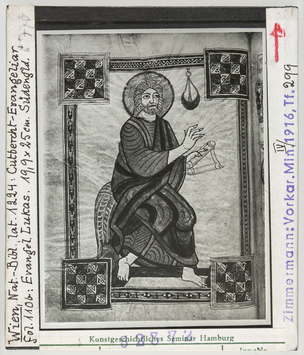 Wien, Nat.-Bibl. lat. 1224: Cutbercht-Evangeliar,
fol. 110b: Evangel. Lukas. 19,9 x 25 cm. Südengld.
Zimmermann: Vorkar. Min. 1916, Tf. 299
IV/
Kunstgeschichtliches Seminar Hamburg